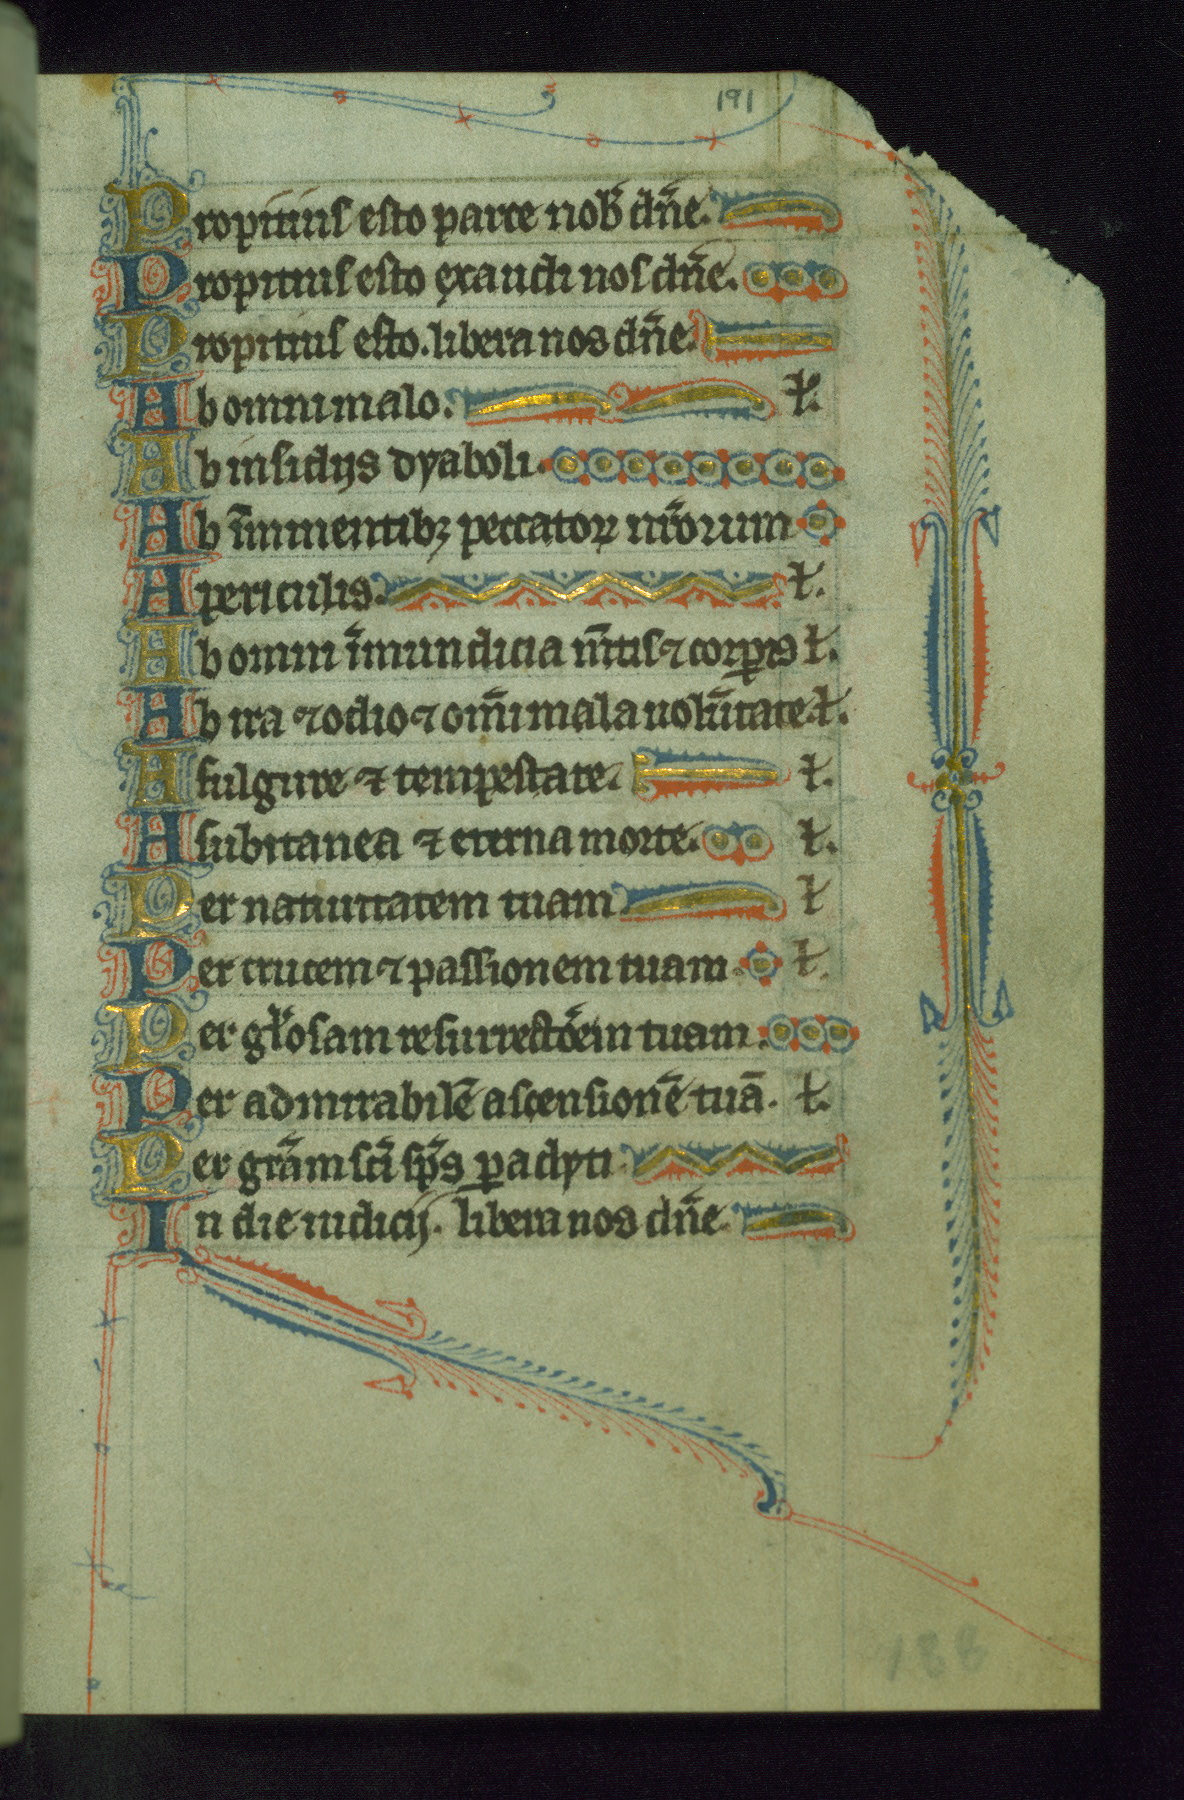 191
Propitius esto parce nob̄ dn̄e.
Propitius esto exaudi nos dn̄e.
Propitius esto. libera nos dn̄e.
Ab omni malo. ł.
Ab insidijs dyaboli.
Ab īminentibꝫ peccatoꝝ nr̄orum
A periculis. ł.
Ab omni īmundicia mētis ⁊ corꝑis ł.
Ab ira ⁊ odio ⁊ om̄i mala uolūtate. ł.
A fulgure ⁊ tempestate. ł.
A subitanea ⁊ eterna morte. ł.
Per natiuitatem tuam. ł
Per crucem ⁊ passionem tuam. ł.
Per gl̄osam resurrectōem tuam.
Per admirabilē ascensionē tuā. ł.
Per grām sc̄i sp̄s ꝑaclyti.
In die iudicij. libera nos dn̄e.
188